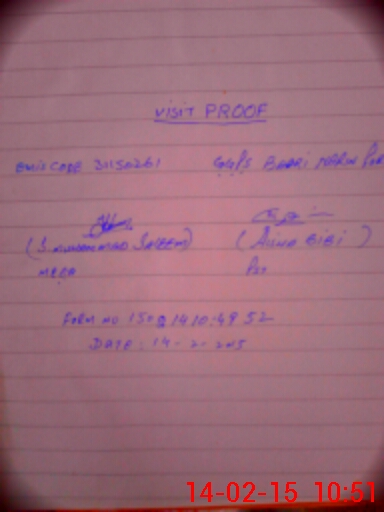 VISIT PROOF
EMIS CODE 31150261 GGPS BADRI
(S. MUHAMMAD SALEEM) (AMNA BIBI)
MEEA PST
FORM NO 14 10:49 52
DATE: 14-2-2015
14-02-15 10:51